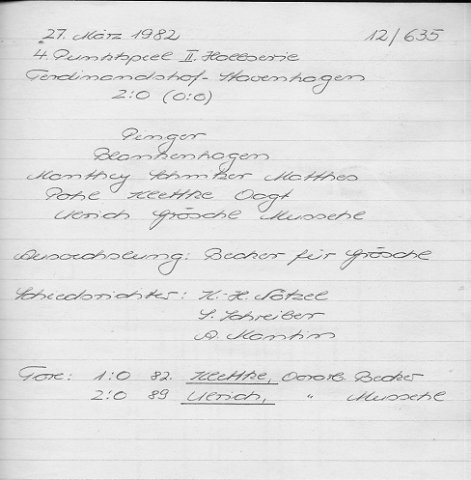 27. März 1982 12/635
4. Punktspiel II. Halbserie
Ferdinandshof - Stavenhagen
2:0 (0:0)
Penger
Blankenhagen
Manthey Schnitzer Matthes
Pohl Klettke Vogt
Ulrich Grösche Muschel
Auswechslung: Becker für Grösche
Schiedsrichter: K.-H. Nötzel
S. Schreiber
A.
Tore: 1:0 82. Klettke, Vorarb. Becker
2:0 89 Ulrich, " Muschel